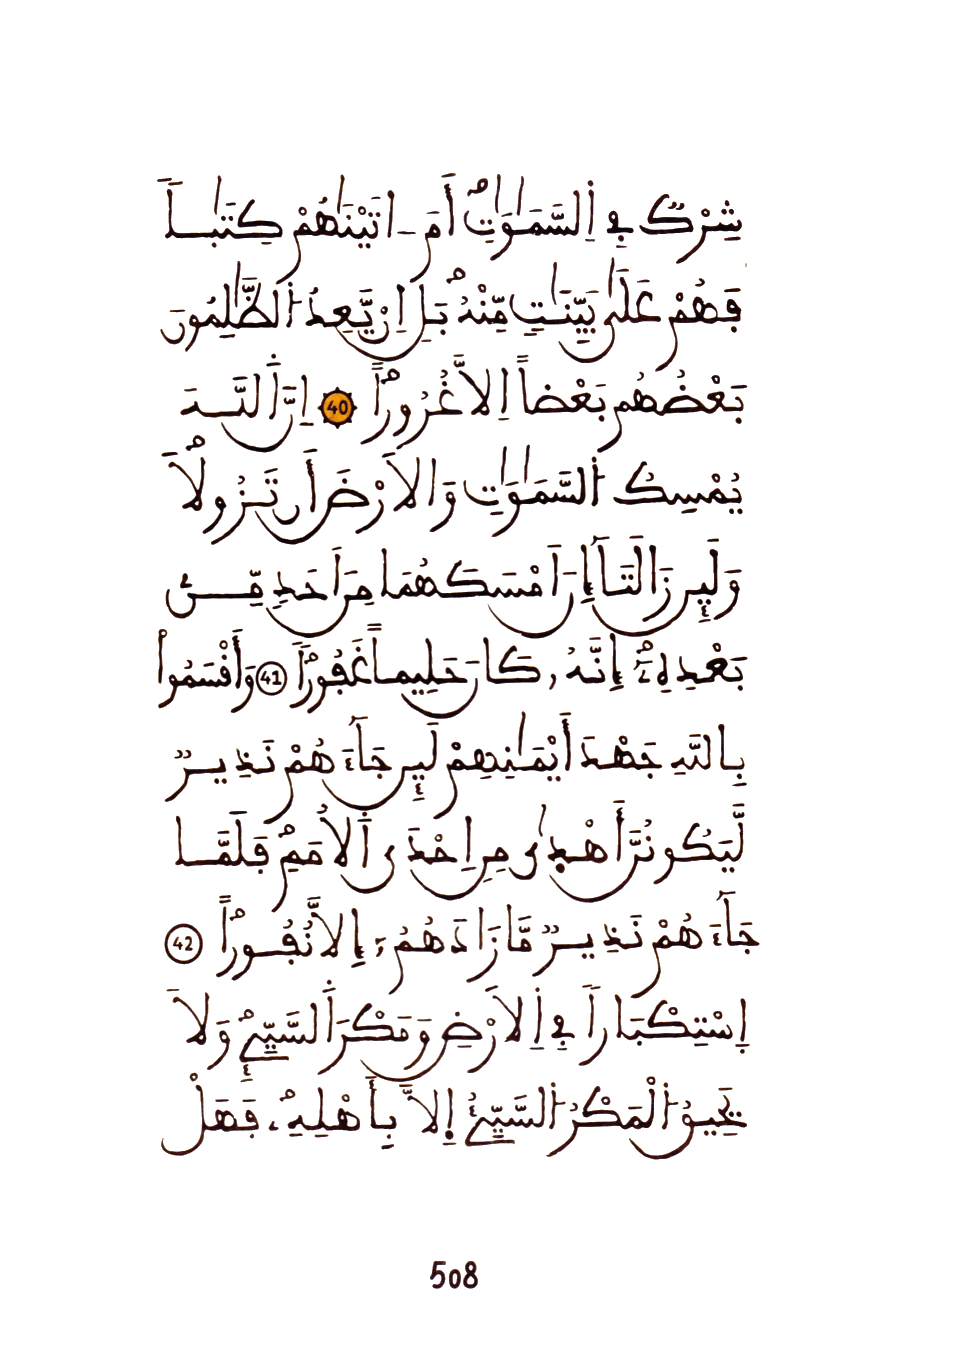 شِرْكٌ فِي اِ۬لسَّمَٰوَٰتِۖ أَمَ اٰتَيْنَٰهُمْ كِتَٰباٗ
فَهُمْ عَلَىٰ بَيِّنَٰتٖ مِّنْهُۖ بَلِ اِنْ يَّعِدُ اُ۬لظَّٰلِمُونَ
بَعْضُهُم بَعْضاً اِلَّا غُرُوراًۖ 40 اِنَّ اَ۬للَّهَ
يُمْسِكُ اُ۬لسَّمَٰوَٰتِ وَالَارْضَ أَن تَزُولَاۖ
وَلَئِن زَالَتَآ إِنَ اَمْسَكَهُمَا مِنَ اَحَدٖ مِّنۢ
بَعْدِهِۦٓۖ إِنَّهُۥ كَانَ حَلِيماً غَفُوراٗۖ 41 وَأَقْسَمُواْ
بِاللَّهِ جَهْدَ أَيْمَٰنِهِمْ لَئِن جَآءَهُمْ نَذِيرٞ
لَّيَكُونُنَّ أَهْدىٰ مِنِ اِحْدَى اَ۬لُامَمِۖ فَلَمَّا
جَآءَهُمْ نَذِيرٞ مَّا زَادَهُمُۥٓ إِلَّا نُفُوراًۖ 42
اِ۪سْتِكْبَاراٗ فِي اِ۬لَارْضِ وَمَكْرَ اَ۬لسَّيِّےِٕۖ وَلَا
يَحِيقُ اُ۬لْمَكْرُ اُ۬لسَّيِّۓُ إِلَّا بِأَهْلِهِۦۖ فَهَلْ
508